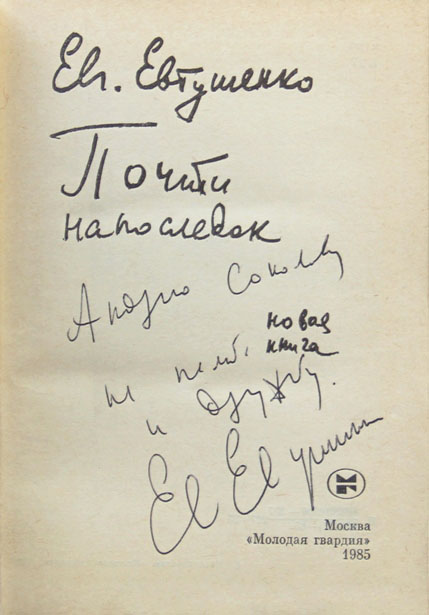 Евг. Евтушенко
Почти
напоследок
Андрею Соколову
новая
книга
на память
и дружбу.
Ев Евтушенко
Москва
«Молодая гвардия»
1985